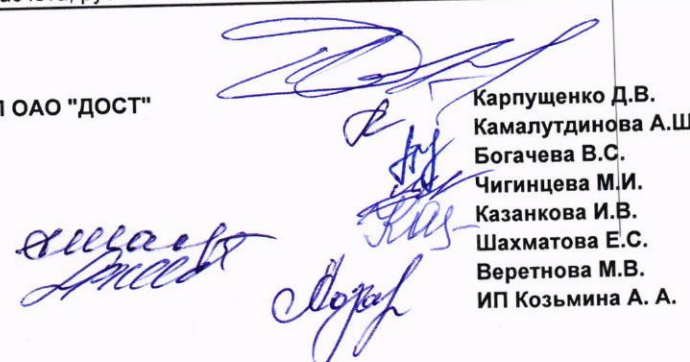 ОАО "ДОСТ"
Карпущенко Д.В.
Камалутдинова А.Ш
Богачева В.С.
Чигинцева М.И.
Казанкова И.В.
Шахматова Е.С.
Веретнова М.В.
ИП Козьмина А. А.